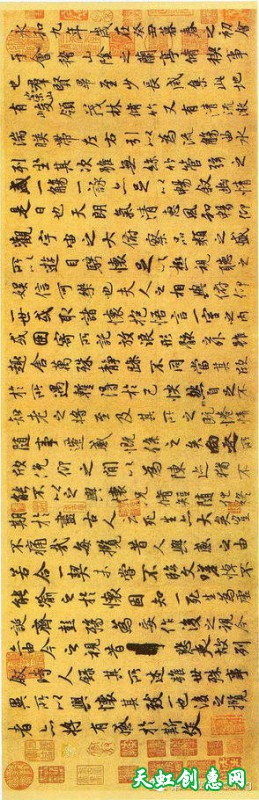 永和九年歲在癸丑暮春之初會
于會稽山陰之蘭亭脩稧事
也羣賢畢至少長咸集此地
有崇山峻領茂林脩竹又有清流激
湍暎帶左右引以為流觴曲水
列坐其次雖無絲竹管弦之
盛一觴一詠亦足以暢敘幽情
是日也天朗氣清惠風和暢仰
觀宇宙之大俯察品類之盛
所以遊目騁懷足以極視聽之
娛信可樂也夫人之相與俯仰
一世或取諸懷抱悟言一室之內
或因寄所託放浪形骸之外雖
趣舍萬殊靜躁不同當其欣
於所遇蹔得於己怏然自足不
知老之將至及其所之既惓情
隨事遷感慨係之矣向之所
欣俛仰之間以為陳迹猶不
能不以之興懷況脩短隨化終
期於盡古人云死生亦大矣豈
不痛哉每攬昔人興感之由
若合一契未嘗不臨文嗟悼不
能喻之於懷固知一死生為虛
誕齊彭殤為妄作後之視今
亦由今之視昔悲夫故列
敘時人錄其所述雖世殊事
異所以興懷其致一也後之攬
者亦將有感於斯文
天虹创意网